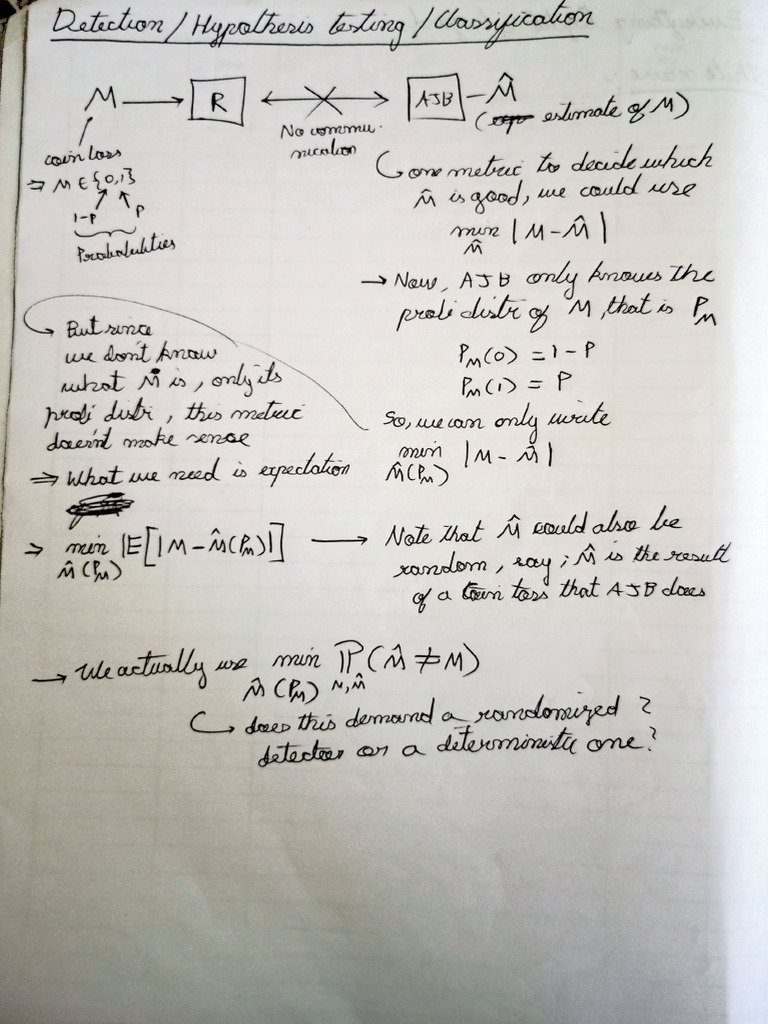 Detection / Hypothesis testing / Classification
M → R ↔ AJB – M̂
No commu-
nication
( estimate of M)
coin toss
⇒ M ∈ {0,1}
1-P P
Probabilities
one metric to decide which
M̂ is good, we could use
min |M - M̂|
M̂
→ Now, AJB only knows the
prob distr of M, that is P_M
P_M(0) = 1-P
P_M(1) = P
So, we can only write
min |M - M̂|
M̂(P_M)
But since
we don't know
what M is, only its
prob distr, this metric
doesn't make sense
⇒ What we need is expectation
⇒ min E[|M - M̂(P_M)|] →
M̂(P_M)
Note that M̂ could also be
random, say; M̂ is the result
of a coin toss that AJB does
→ We actually use min P(M̂ ≠ M)
M̂(P_M) M,M̂
does this demand a randomized ?
detector or a deterministic one?